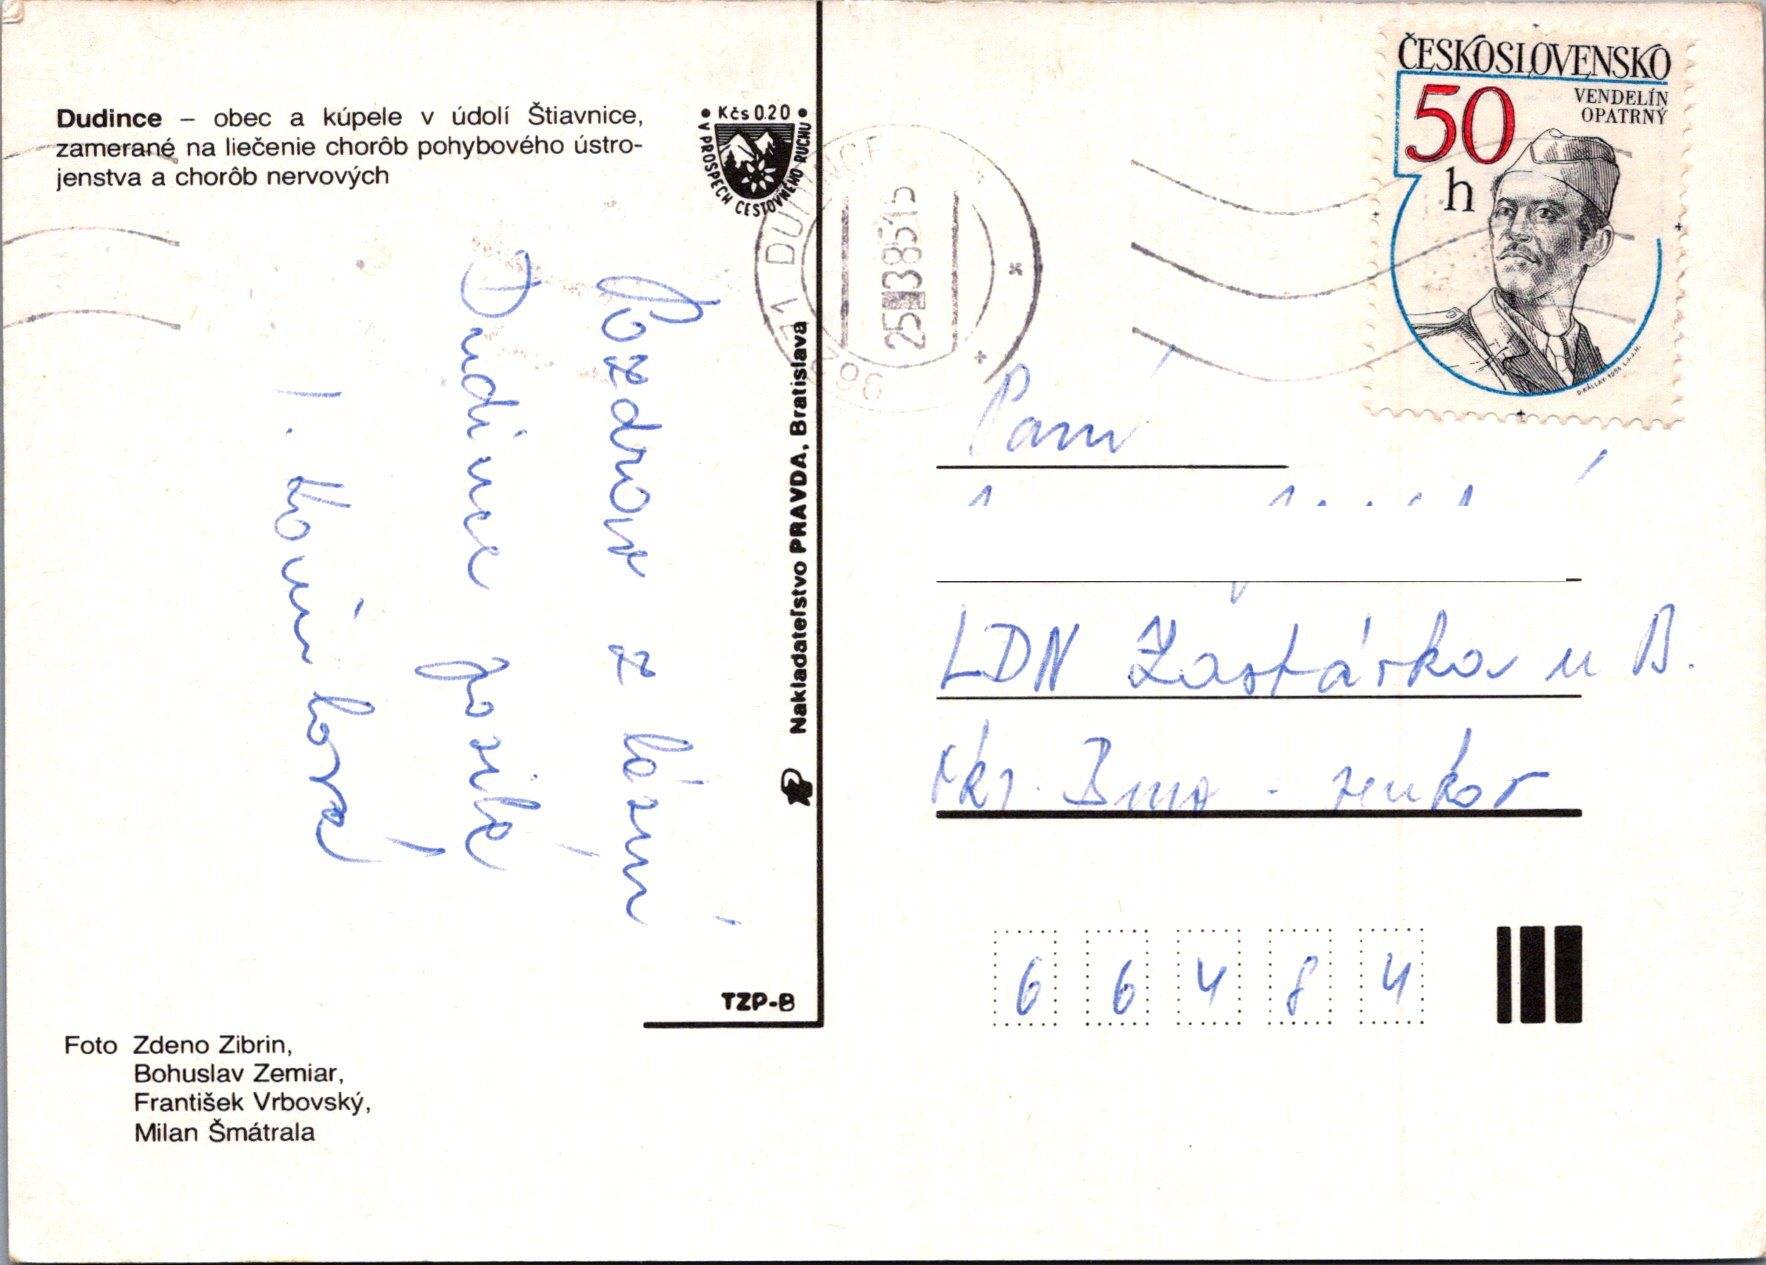 Dudince – obec a kúpele v údolí Štiavnice,
zamerané na liečenie chorôb pohybového ústro-
jenstva a chorôb nervových
Kčs 0.20
V PROSPECH CESTOVNÉHO RUCHU
Pozdrav z lázní
Dudince posílá
Nakladateľstvo PRAVDA, Bratislava
TZP-B
Foto Zdeno Zibrin,
Bohuslav Zemiar,
František Vrbovský,
Milan Šmátrala
DUDINCE
25.3.85 15
ČESKOSLOVENSKO
50
h
VENDELÍN
OPATRNÝ
Paní
LDN Zastávka u B.
okr. Brno - venkov
66484